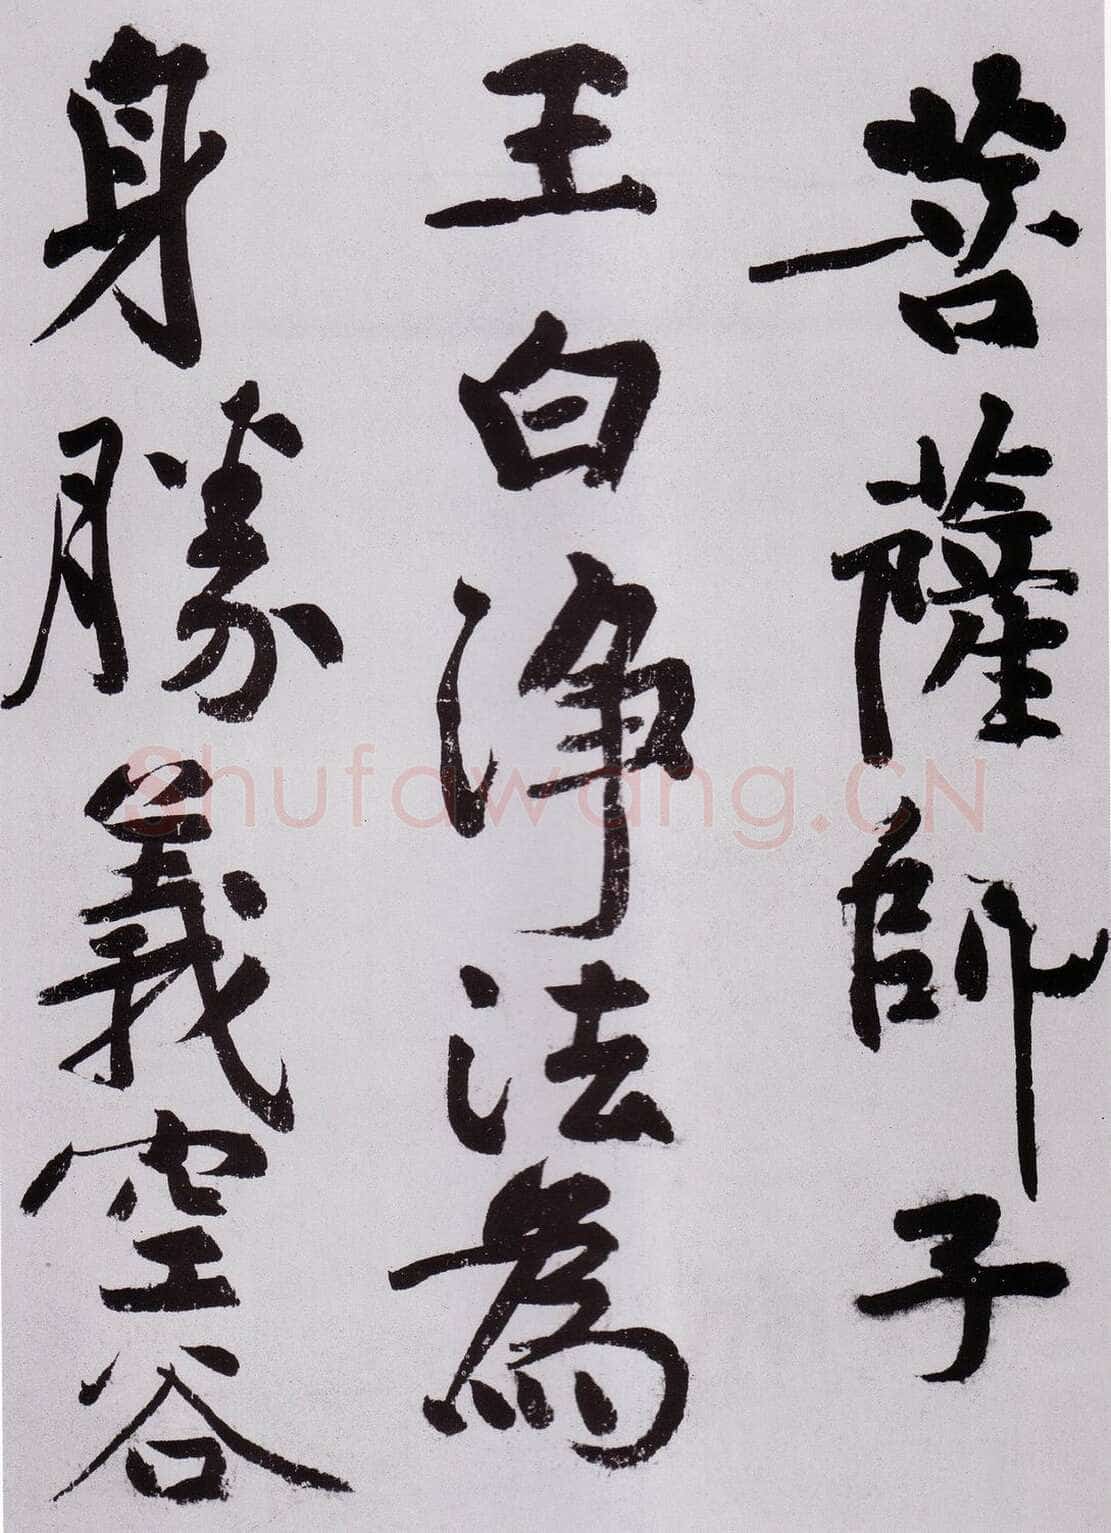 菩薩師子
王白净法為
身勝義空谷
Shufawang.CN